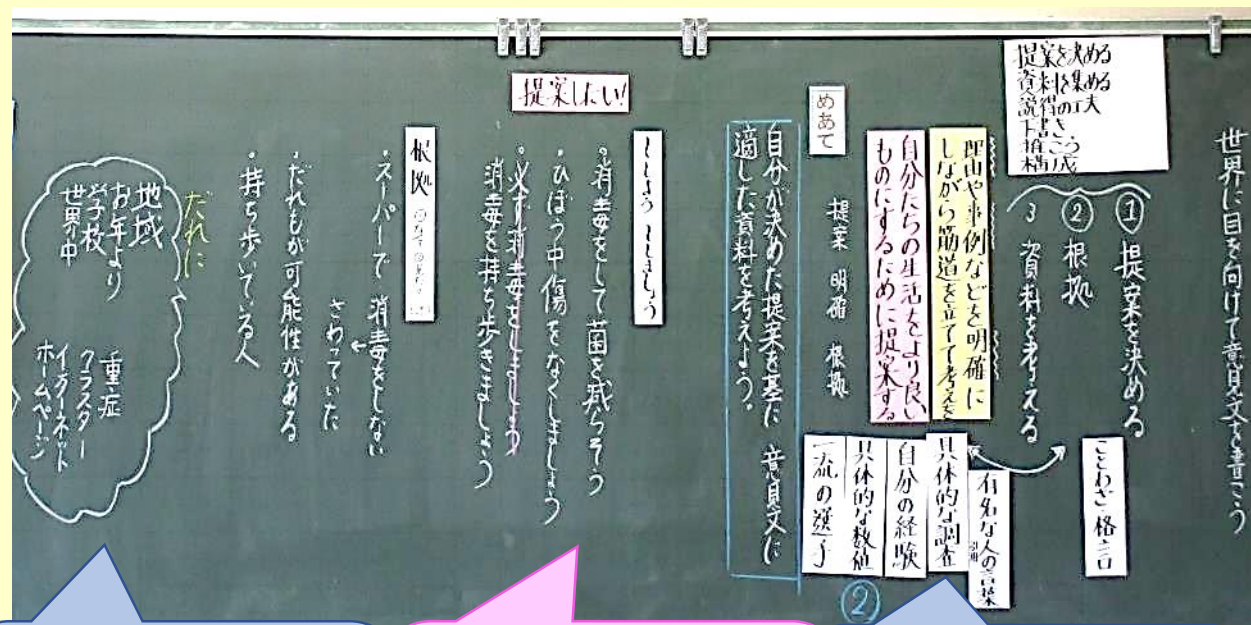 世界に目を向けて意見文を書こう
提案を決める
資料を集める
説得の工夫
下書き
推こう
構成
① 提案を決める
② 根拠
3 資料を考える
ことわざ・格言
有名な人の言葉
引用
具体的な調査
自分の経験
具体的な数値
一流の選手
②
理由や事例などを明確に
しながら筋道を立てて考えを
自分たちの生活をより良い
ものにするために提案する
提案 明確 根拠
めあて
自分が決めた提案を基に 意見文に
適した資料を考えよう。
提案したい!
〜しよう 〜しましょう
・消毒をして菌を減らそう
・ひぼう中傷をなくしましょう
・必ず消毒をしましょう
消毒を持ち歩きましょう
根拠
・スーパーで 消毒をしない
さわっていた
・だれもが可能性がある
・持ち歩いている人
だれに
地域
お年より
学校
世界中
重症
クラスター
インターネット
ホームページ